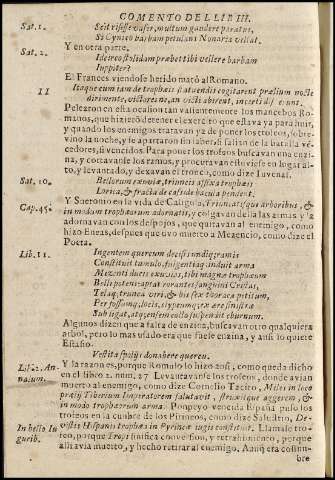 COMENTO DEL LIB III.
Sat. 1.
Scit risisse vafer, multum gaudere paratus,
Si Cynico barbam petulans Nonaria vellat.
Sat. 2.
Y en otra parte.
Idcirco stolidam præbet tibi vellere barbam
Iuppiter?
El Frances viendose herido mató al Romano.
II
Itaque cum iam de trophæis statuendis cogitarent prælium nocte
dirimente, victores ne, an victi abirent, incerti
Pelearon en esta ocasion tan valientemente los mancebos Ro-
manos, que hizieron detener el exercito que estava ya para huir,
y quando los enemigos tratavan ya de poner los trofeos, sobre-
vino la noche, y se apartaron sin saber si salian de la batalla ve-
cedores, si vencidos. Para poner los trofeos buscavan una enzi-
na, y cortavanle los ramos, y procuravan estuviese en lugar al-
to, y levantado, y dexavan el tronco, como dize Iuvenal.
Sat. 10.
Bellorum exuviæ, truncis affixa trophæis
Lorica, & fracta de casside buccula pendens.
Cap. 45.
Y Suetonio en la vida de Caligola, Truncatisque arboribus, &
in modum trophæorum adornatis, y colgavan della las armas y la
adornavan con los despojos, que quitavan al enemigo, como
hizo Eneas, despues que uvo muerto a Mezencio, como dize el
Poeta.
Lib. 11.
Ingentem quercum decisis undique ramis
Constituit tumulo, fulgentiaque induit arma
Mezenti ducis exuvias, tibi magne trophæum
Bellipotens: aptat rorantes sanguine cristas,
Telaque trunca viri, & bis sex thoraca petitum,
Perfossumque locis, clypeumque ex ære sinistræ
Subligat, atque ensem collo suspendit eburnum.
Algunos dizen que a falta de enzina, buscavan otro qualquiera
arbol, pero lo mas usado era que fuese enzina, y ansi lo quiere
Estatio.
Vestita spolijs donabere quercu.
Lib. 2. An-
na. um.
Y la razon es, porque Romulo lo hizo ansi, como queda dicho
en el libro 2. num. 27 Levantavanse los trofeos, donde avian
muerto al enemigo, como dize Cornelio Tacito, Miles in loco
prælij Tiberium Imperatorem salutavit, struxitque aggerem, &
in modo trophæorum arma. Pompeyo vencida España puso los
trofeos en la cumbre de los Pirineos, como dize Salustio, De-
In bello In
gurib.
victis Hispanis trophæa in Pyrineis iugis constituit. Llamase tro-
feo, porque Tropi significa conversion, y retraymiento, porque
alli avia muerto, y hecho retirar al enemigo. Avnque era costum-
bre